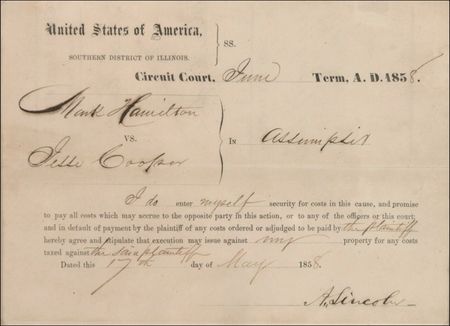 United States of America,
SOUTHERN DISTRICT OF ILLINOIS.
SS.
Circuit Court, June Term, A. D. 1858.
Mark Hamilton
VS.
Jesse Cooper
IN Assumpsit
I do enter myself security for costs in this cause, and promise
to pay all costs which may accrue to the opposite party in this action, or to any of the officers of this court;
and in default of payment by the plaintiff of any costs ordered or adjudged to be paid by the plaintiff
hereby agree and stipulate that execution may issue against my property for any costs
taxed against the said plaintiff
Dated this 17th day of May 1858.
A. Lincoln